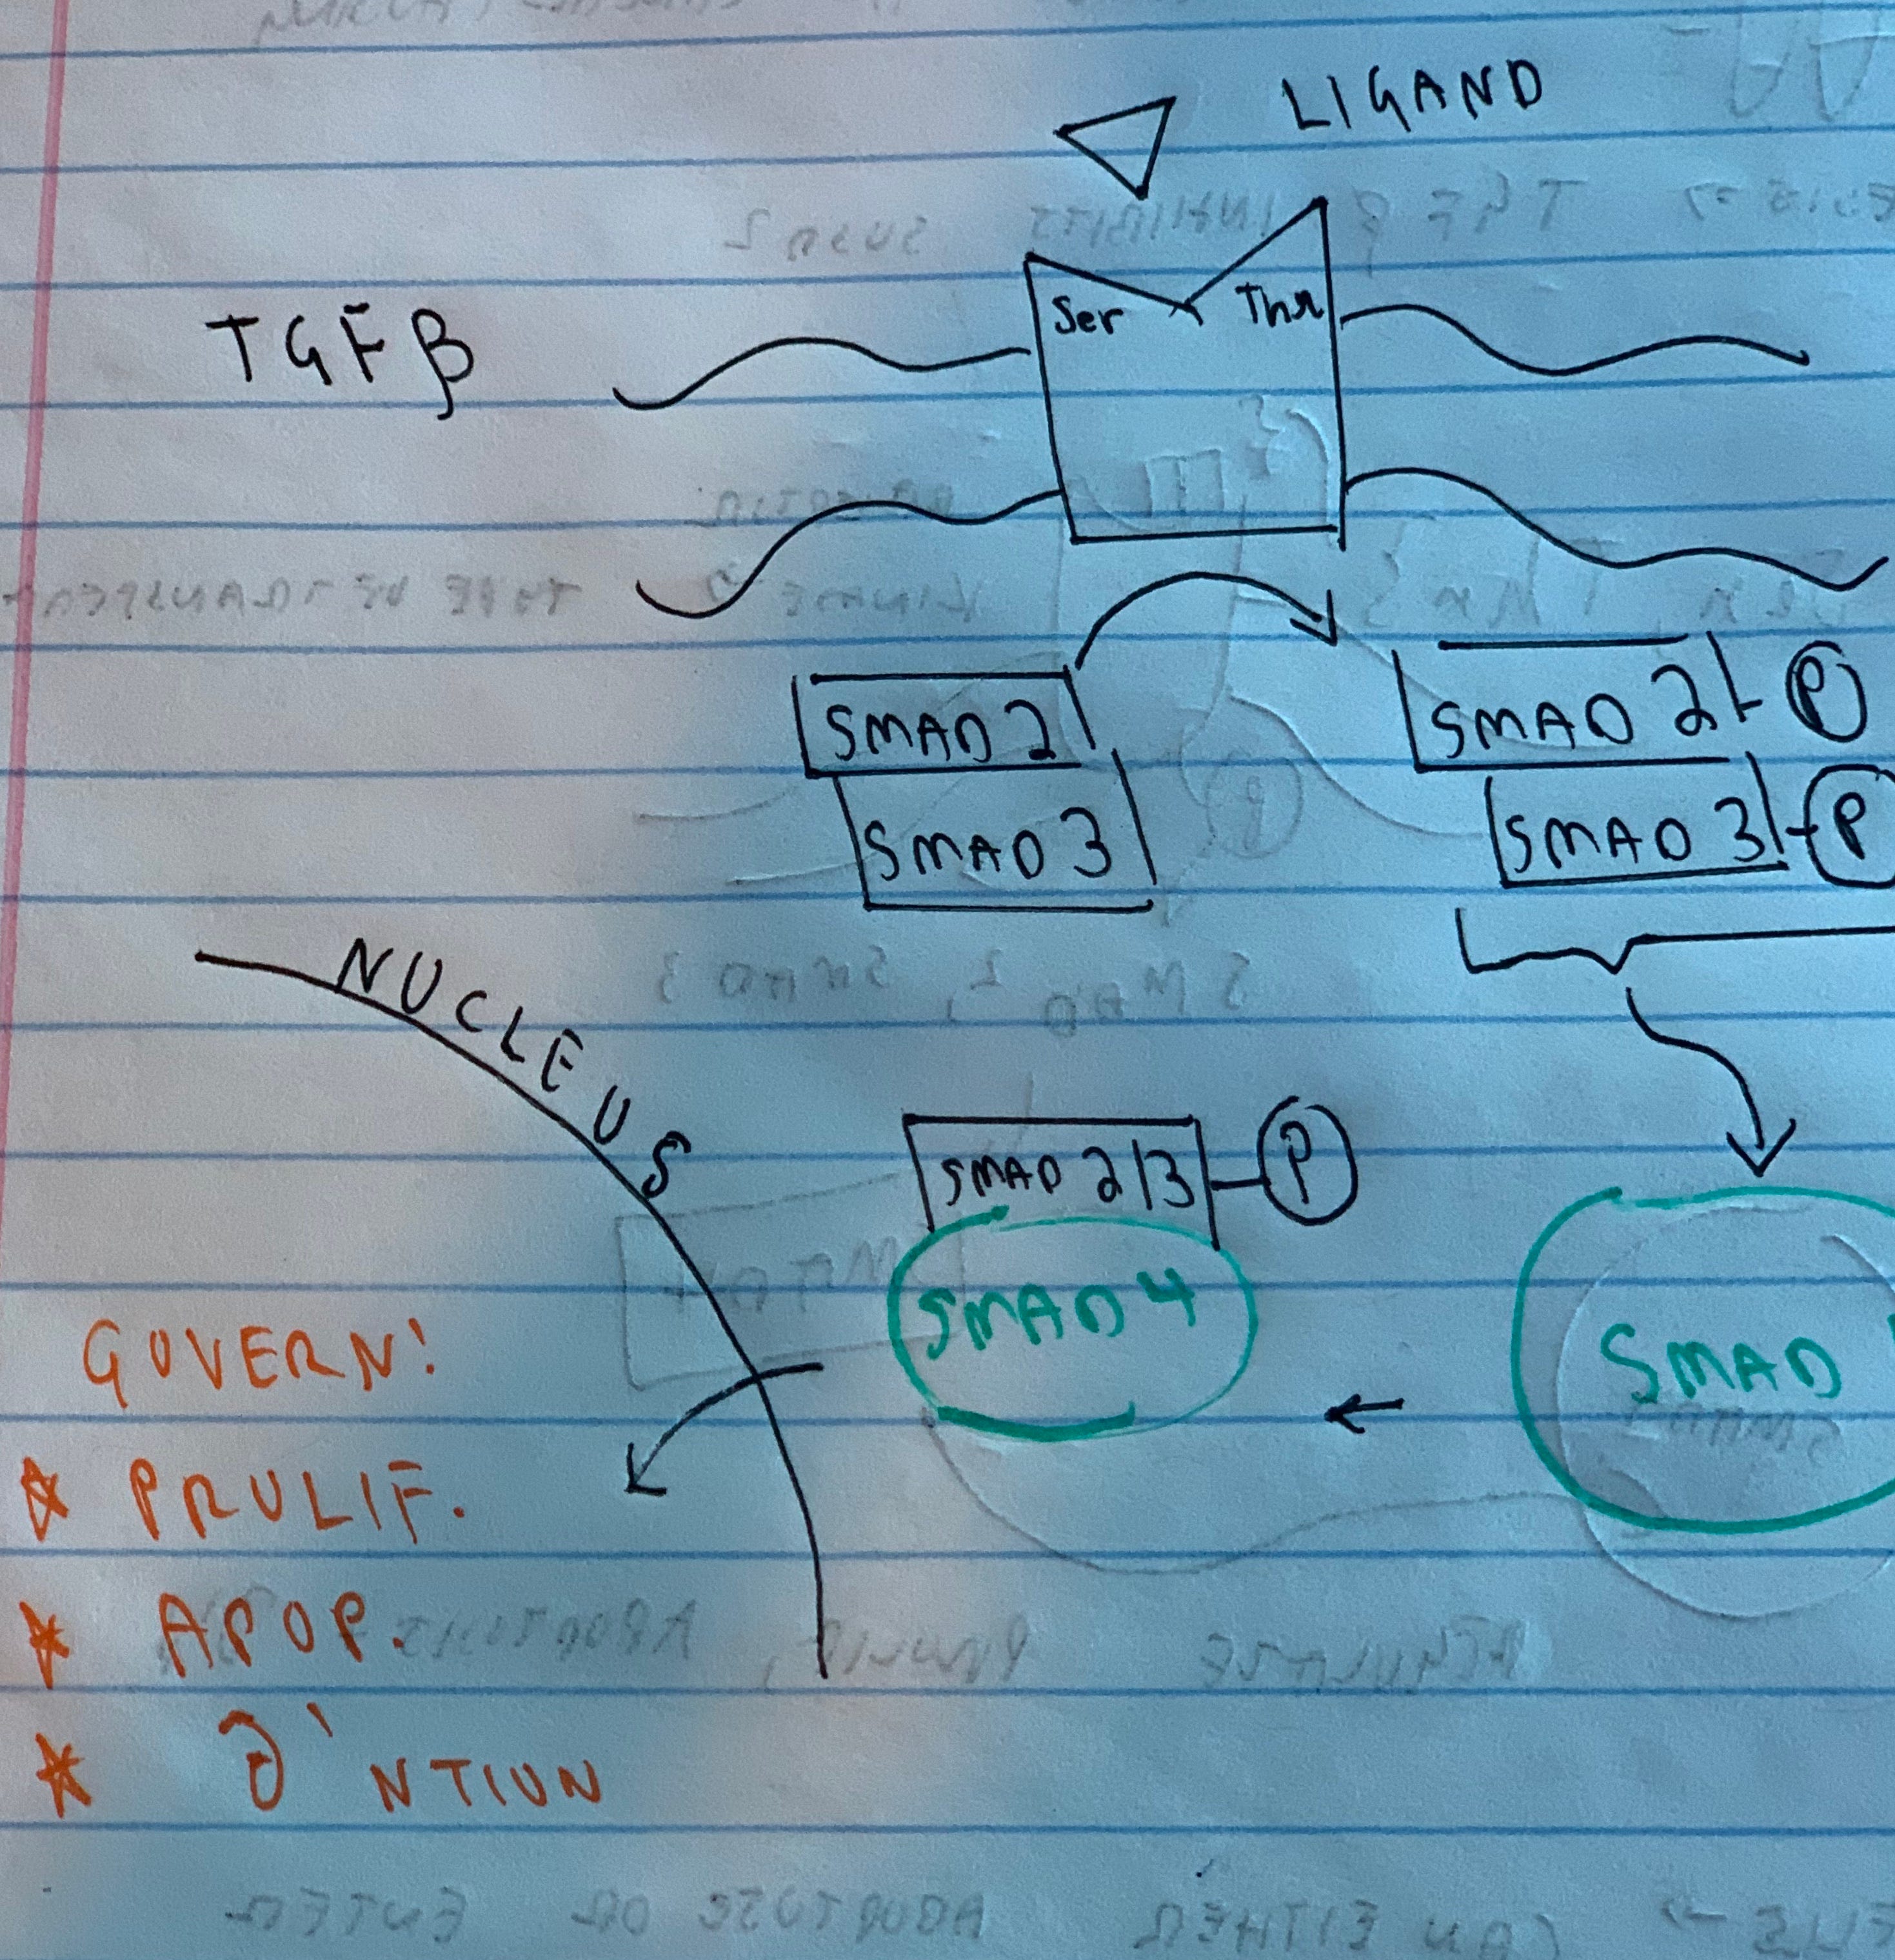 LIGAND
TGFβ
Ser Thr
SMAD 2
SMAD 2 P
SMAD 3
SMAD 3 P
NUCLEUS
SMAD 2/3 P
SMAD 4
SMAD
GOVERN!
PROLIF.
APOP.
∂'NTION